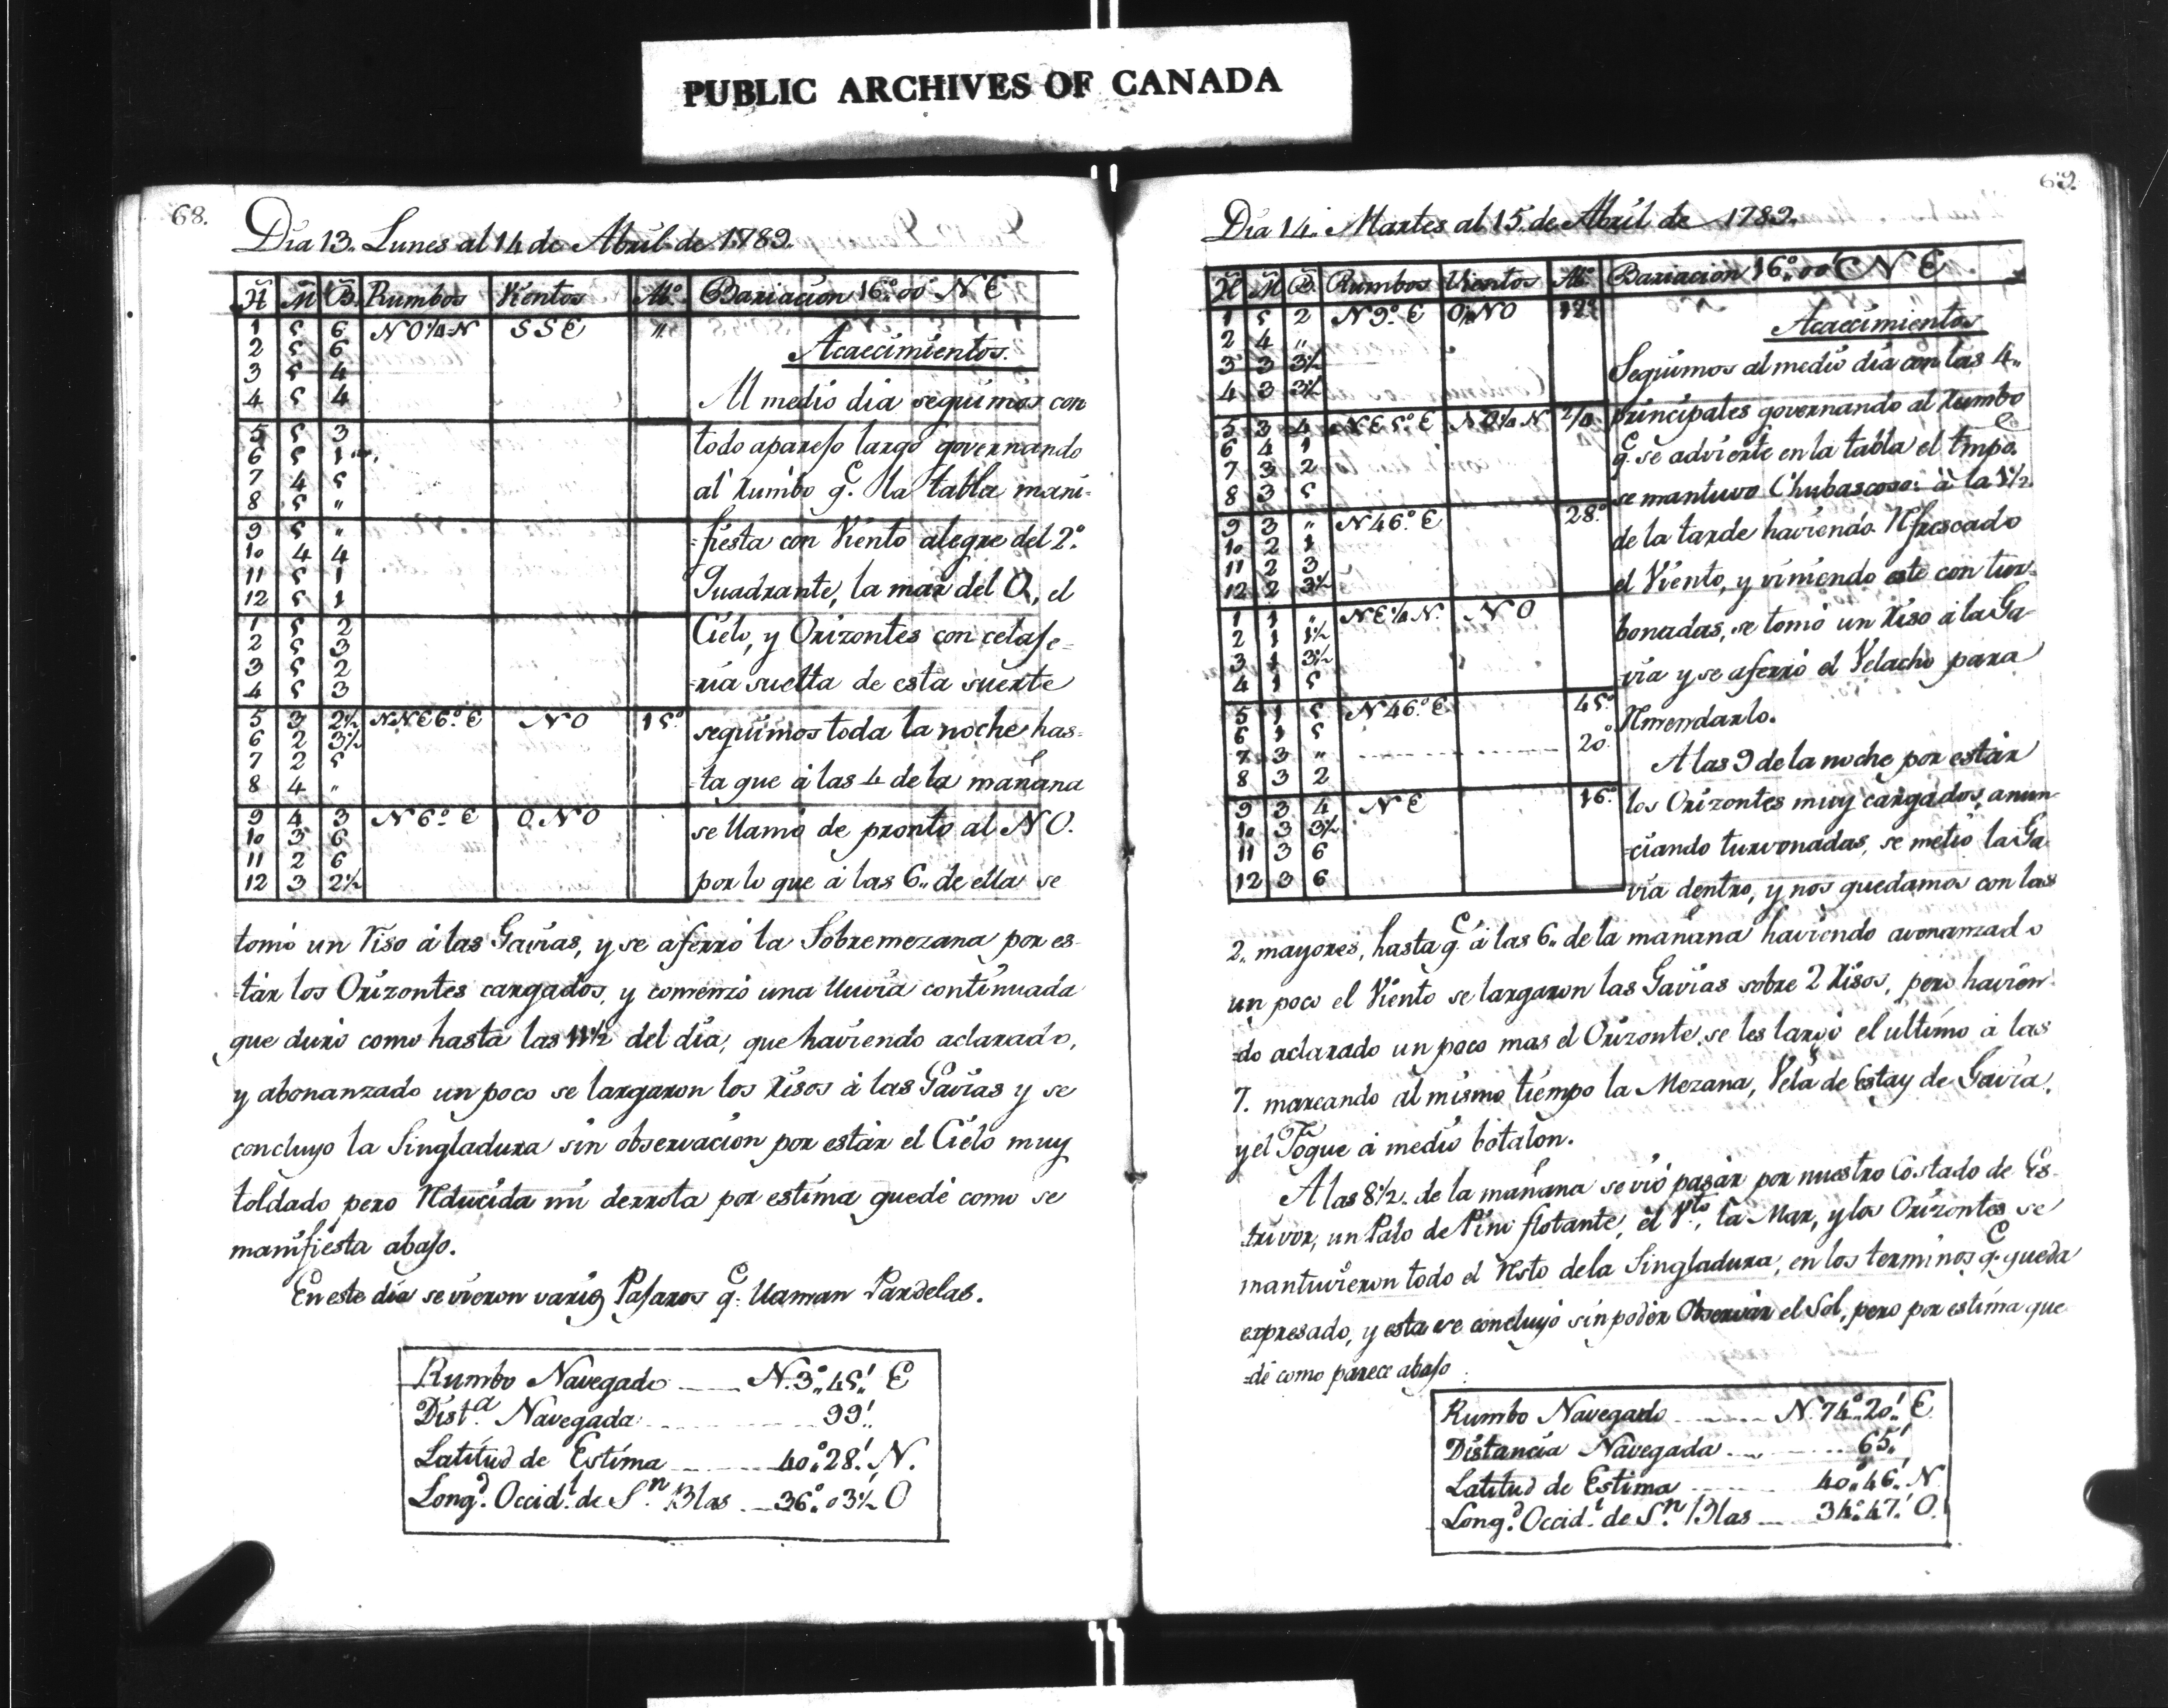 PUBLIC ARCHIVES OF CANADA
68.
Dia 13. Lunes al 14 de Abril de 1789.
H M B. Rumbos Vientos Ab.º Bariacion 16.º 00' N E
1 5 6 N O ¼ N S S E "
2 5 6
3 5 4
4 5 4
5 5 3
6 5 1
7 4 5
8 5 "
9 5 "
10 4 4
11 5 1
12 5 1
1 5 2
2 5 3
3 5 2
4 5 3
5 3 2½ N N E 6.º E N O 15.º
6 2 3½
7 2 5
8 4 "
9 4 3 N 6.º E O N O
10 3 6
11 2 6
12 3 2½
Acaecimientos.
Al medio dia seguimos con
todo aparejo largo governando
al Rumbo q.e la tabla mani-
=fiesta con Viento alegre del 2.º
Quadrante, la mar del O, el
Cielo, y Orizontes con celaje-
=ria suelta de esta suerte
seguimos toda la noche has=
=ta que á las 4 de la mañana
se llamó de pronto al N O.
por lo que á las 6,, de ella se
tomó un Riso á las Gavias, y se aferró la Sobremezana por es-
=tar los Orizontes cargados, y comenzó una lluvia continuada
que duró como hasta las 11½ del dia, que haviendo aclarado,
y abonanzado un poco se largaron los Risos á las Gavias y se
concluyo la Singladura sin observacion por estár el Cielo muy
toldado pero Reducida mi derrota por estima quedé como se
manifiesta abajo.
En este dia se vieron varios Pajaros q.e llaman Pardelas.
Rumbo Navegado N. 3,,º 45,,' E
Dist.a Navegada 99'.
Latitud de Estima 40,,º 28.' N.
Long.d Occid.l de S.n Blas 36,,º 03½' O
69.
Dia 14. Martes al 15. de Abril de 1789.
H M B. Rumbos Vientos Ab.º Bariacion 16.º 00' N E
1 5 2 N 9.º E O ¼ N O 12º
2 4 "
3 3 3½
4 3 3½
5 3 4 N E 5.º E N O ¼ N
6 4 1
7 3 2
8 3 5
9 3 " N 46.º E 28.º
10 2 1
11 2 3
12 2 3½
1 1 " N E ¼ N. N O
2 1 1½
3 1 3½
4 1 5
5 1 5 N 46.º E 45.º
6 1 5
7 3 " 20.º
8 3 2
9 3 4 N E 16.º
10 3 3½
11 3 6
12 3 6
Acaecimientos
Seguimos al medio dia con las 4,,
principales governando al Rumbo
q.e se advierte en la tabla el tmpo.
se mantuvo Chubascoso: á la 1½
de la tarde haviendo Refrescado
el Viento, y viniendo este con tur-
bonadas, se tomó un Riso á la Ga-
via y se aferró el Velacho para
Remendarlo.
A las 9 de la noche por estár
los Orizontes muy cargados, anun-
=ciando turvonadas, se metió la Ga-
via dentro, y nos quedamos con las
2,, mayores, hasta q.e á las 6,, de la mañana haviendo avonanzado
un poco el Viento se largaron las Gavias sobre 2 Risos, pero havien-
=do aclarado un poco mas el Orizonte, se les largó el ultimo á las
7. mareando al mismo tiempo la Mezana, Vela de Estay de Gavia,
y el Foque á medio botalon.
A las 8½. de la mañana se vió pasár por nuestro Costado de Es-
trivor, un Palo de Pino flotante, el V.to, la Mar, y los Orizontes se
mantuvieron todo el Resto de la Singladura, en los terminos q.e queda
expresado, y esta se concluyó sin podér Observár el Sol, pero por estima que-
=dé como parece abajo
Rumbo Navegado N. 74,,º 20,,' E.
Distancia Navegada 65,,'
Latitud de Estima 40,,º 46,,' N
Long.d Occid.l de S.n Blas 34,,º 47.' O.